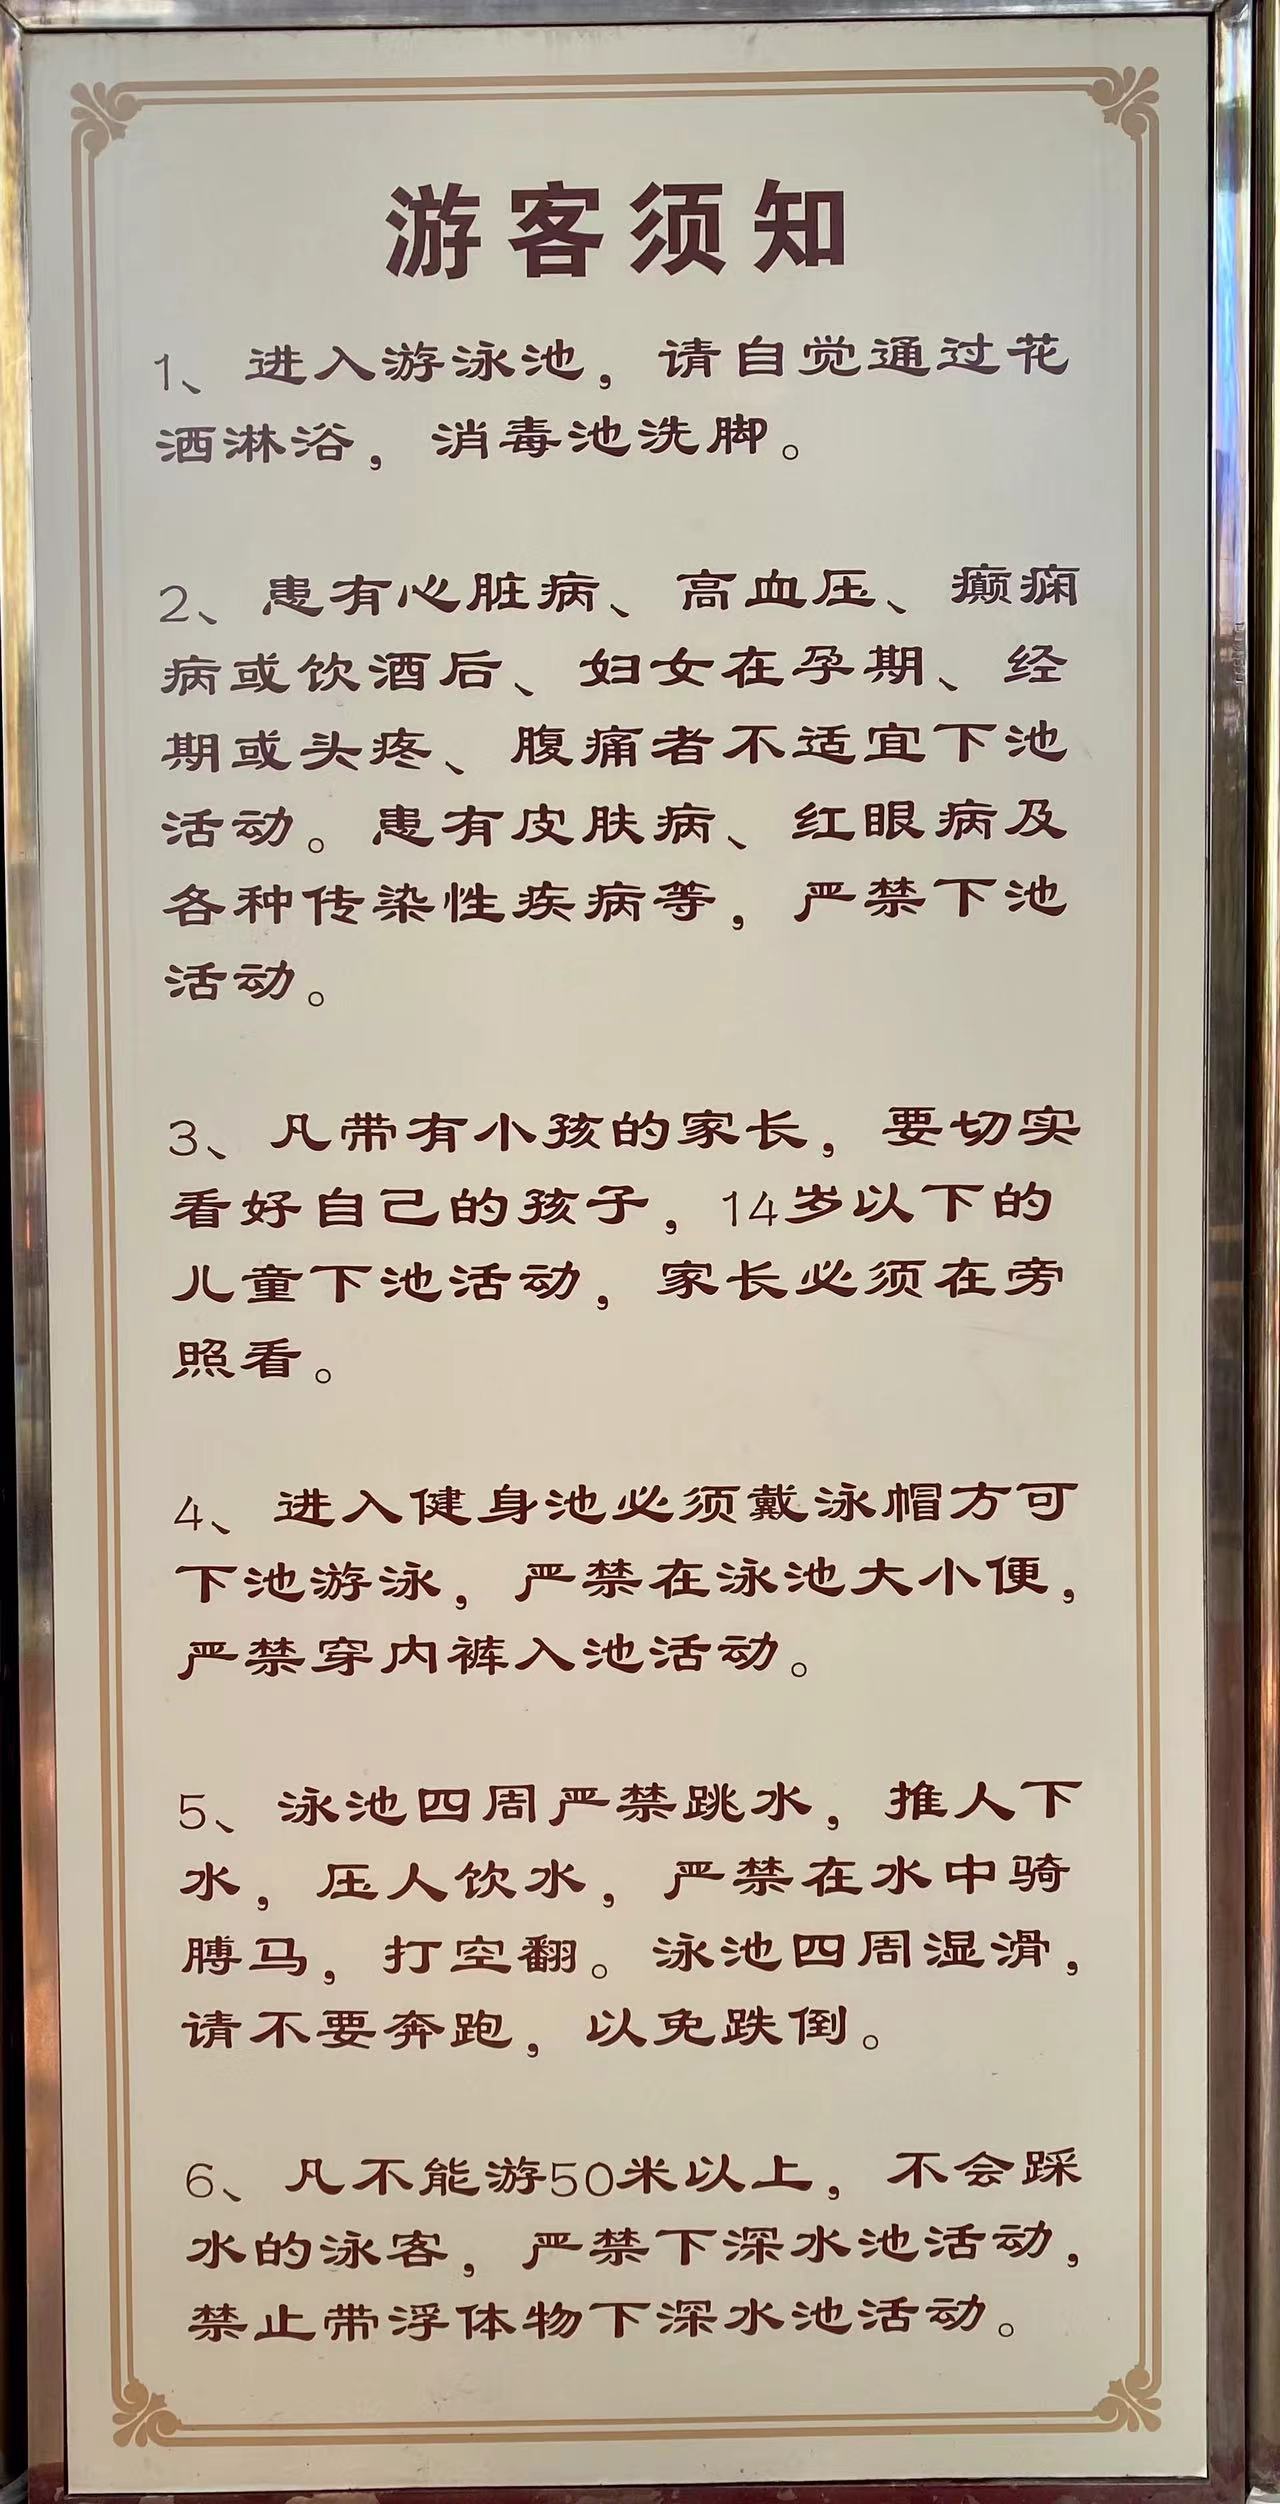 游客须知
1、进入游泳池，请自觉通过花
洒淋浴，消毒池洗脚。
2、患有心脏病、高血压、癫痫
病或饮酒后、妇女在孕期、经
期或头疼、腹痛者不适宜下池
活动。患有皮肤病、红眼病及
各种传染性疾病等，严禁下池
活动。
3、凡带有小孩的家长，要切实
看好自己的孩子，14岁以下的
儿童下池活动，家长必须在旁
照看。
4、进入健身池必须戴泳帽方可
下池游泳，严禁在泳池大小便，
严禁穿内裤入池活动。
5、泳池四周严禁跳水，推人下
水，压人饮水，严禁在水中骑
膊马，打空翻。泳池四周湿滑，
请不要奔跑，以免跌倒。
6、凡不能游50米以上，不会踩
水的泳客，严禁下深水池活动，
禁止带浮体物下深水池活动。